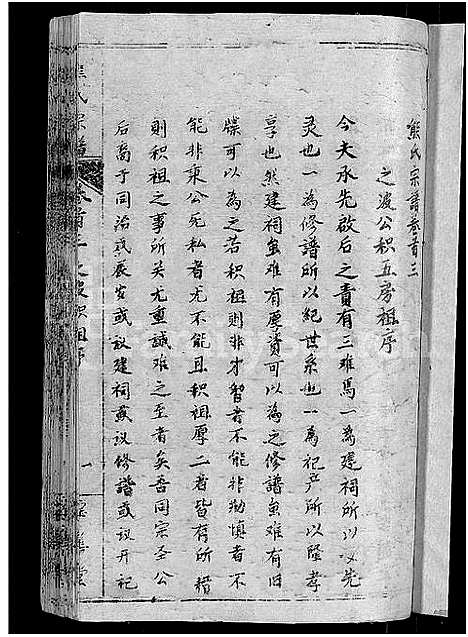 熊氏宗谱卷首三
之波公积五房祖序
今夫承先啟后之责有三难焉一為建祠所以妥先
灵也一為修譜所以纪世系也一為祀产所以隆孝
享也然建祠虽难有厚资可以為之修譜虽难有旧
牒可以為之若积祖则非才智者不能非勤慎者不
能非秉公无私者尤不能且积祖厚二者皆有所藉
则积祖之事所关尤重誠难之至者矣吾同宗圣公
后裔于同治戊辰岁或议建祠或议修譜或议开祀
氏宗譜
卷首三
之波公积祖序
一